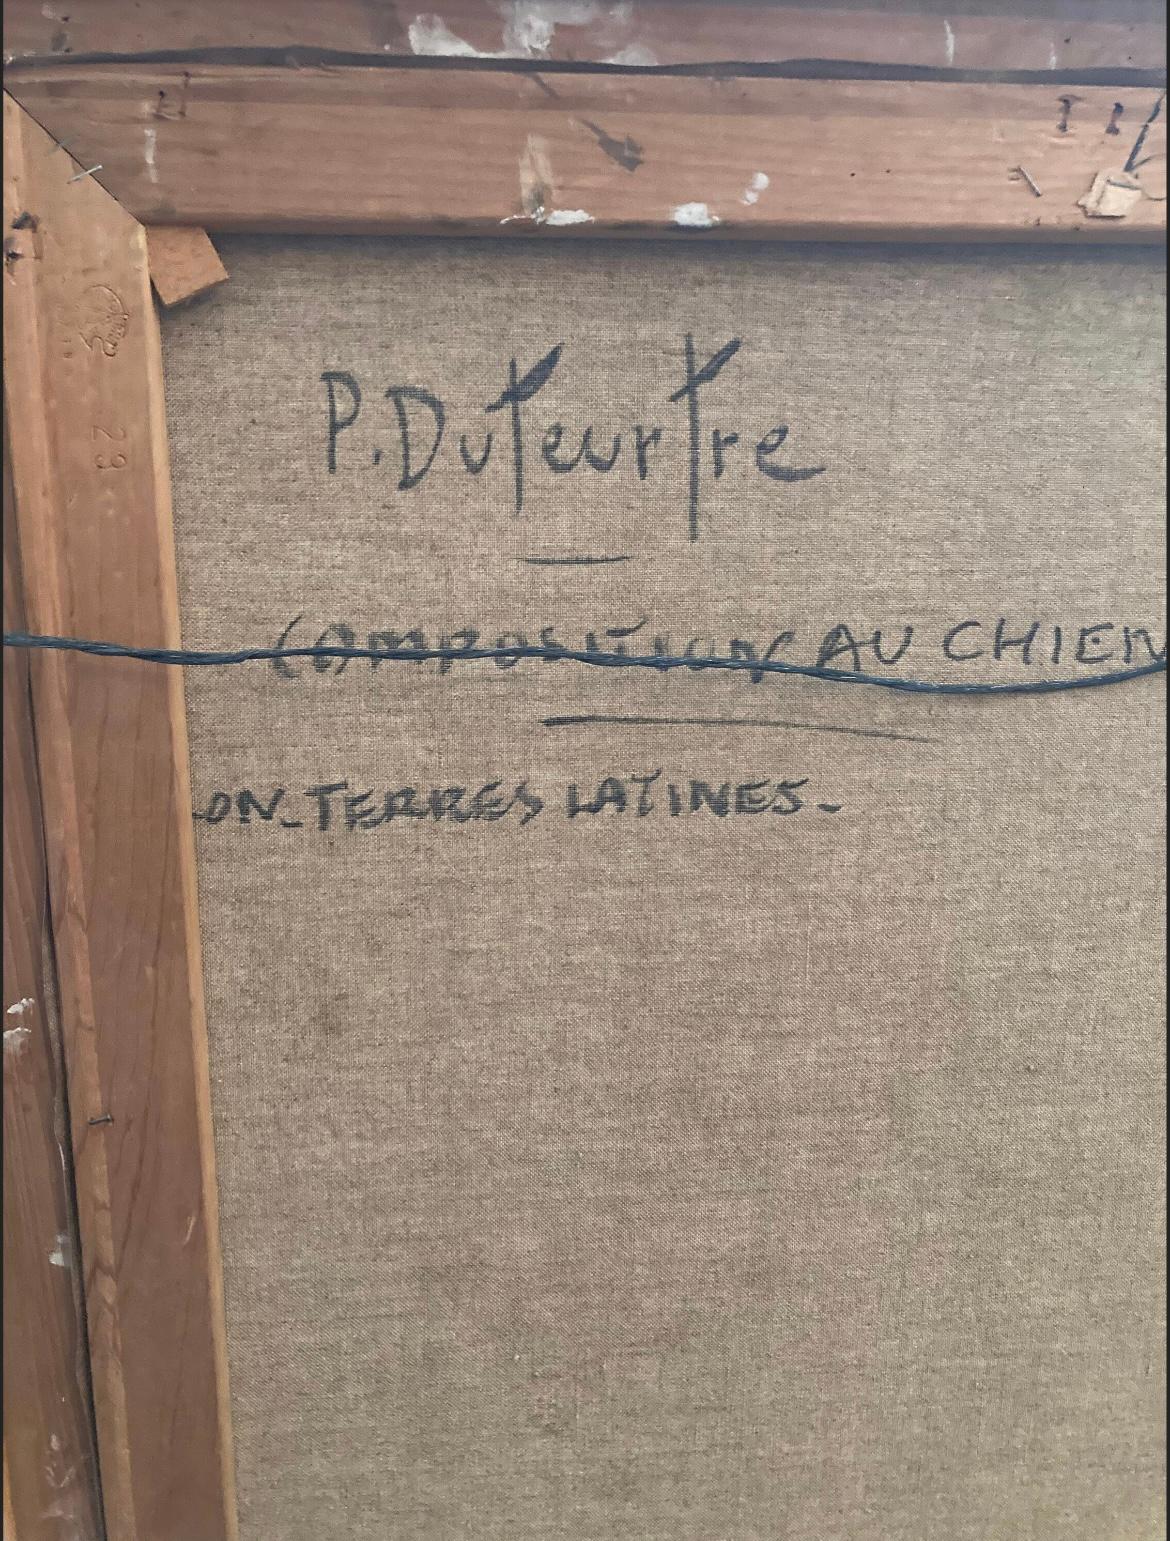 P. Duteurtre
COMPOSITION AU CHIEN
ON_TERRES LATINES-
23